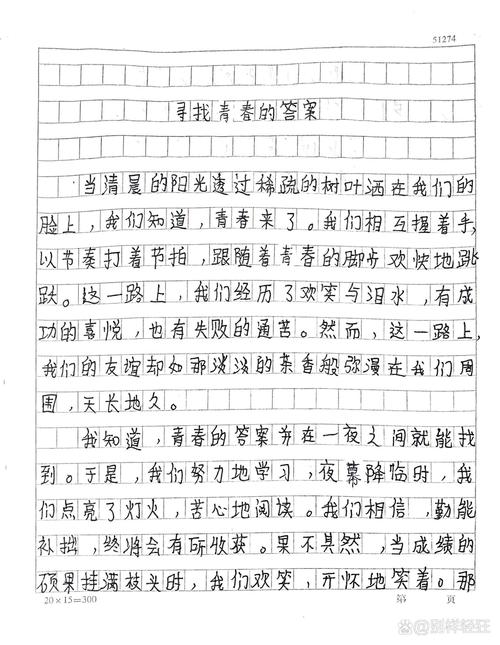 51274
寻找青春的答案
当清晨的阳光透过稀疏的树叶洒在我们的
脸上，我们知道，青春来了。我们相互握着手，
以节奏打着节拍，跟随着青春的脚步欢快地跳
跃。这一路上，我们经历了欢笑与泪水，有成
功的喜悦，也有失败的通苦。然而，这一路上，
我们的友谊却如那淡淡的茶香般弥漫在我们周
围，天长地久。
我知道，青春的答案并在一夜之间就能找
到。于是，我们努力地学习，夜幕降临时，我
们点亮了灯火，苦心地阅读。我们相信，勤能
补拙，终将会有所收获。果不其然，当成绩的
硕果挂满枝头时，我们欢笑，开怀地笑着。那
20×15=300 第 页
@别样轻狂